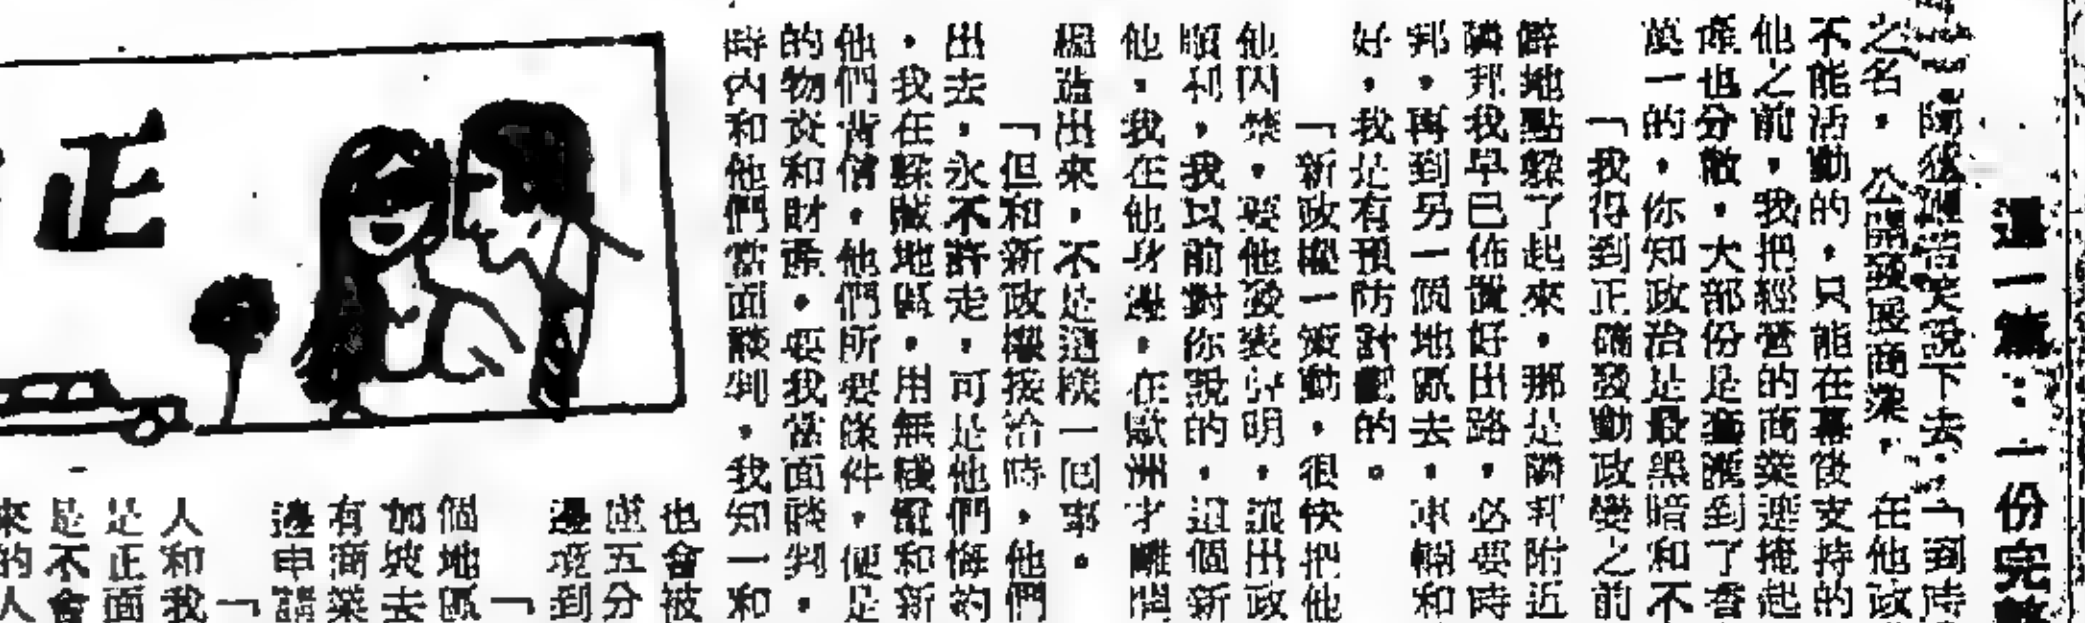 這一篇：一份完整
陳披謎苦笑說下去，「到時
之名，公開發展商業，在他政
不能活動的，只能在幕後支持的
他之前，我把經營的商業連掩起
產也分散，大部份是搬到了香
萬一的，你知政治是最黑暗和不
「我得到正確發動政變之前
僻地點躲了起來，那是隣邦附近
隣邦我早已佈置好出路，必要時
邦，再到另一個地區去，車輛和
好，我是有預防計劃的。
「新政權一策動，很快把他
他囚禁，要他發表聲明，讓出政
順利，我以前對你說的，這個新
他，我在他身邊，在歐洲才離開
楊造出來，不是這樣一回事。
「但和新政權接洽時，他們
出去，永不許走，可是他們悔約
，我在躲藏地區，用無綫電和新
他們背信，他們所要條件，便是
的物資和財產，要我當面談判，
時內和他們當面談判，我知一和
正
也會被
成五分
邊境到
「
個地區
加坡去
有商業
邊申請
「
人和我
是正面
是不會
來的人